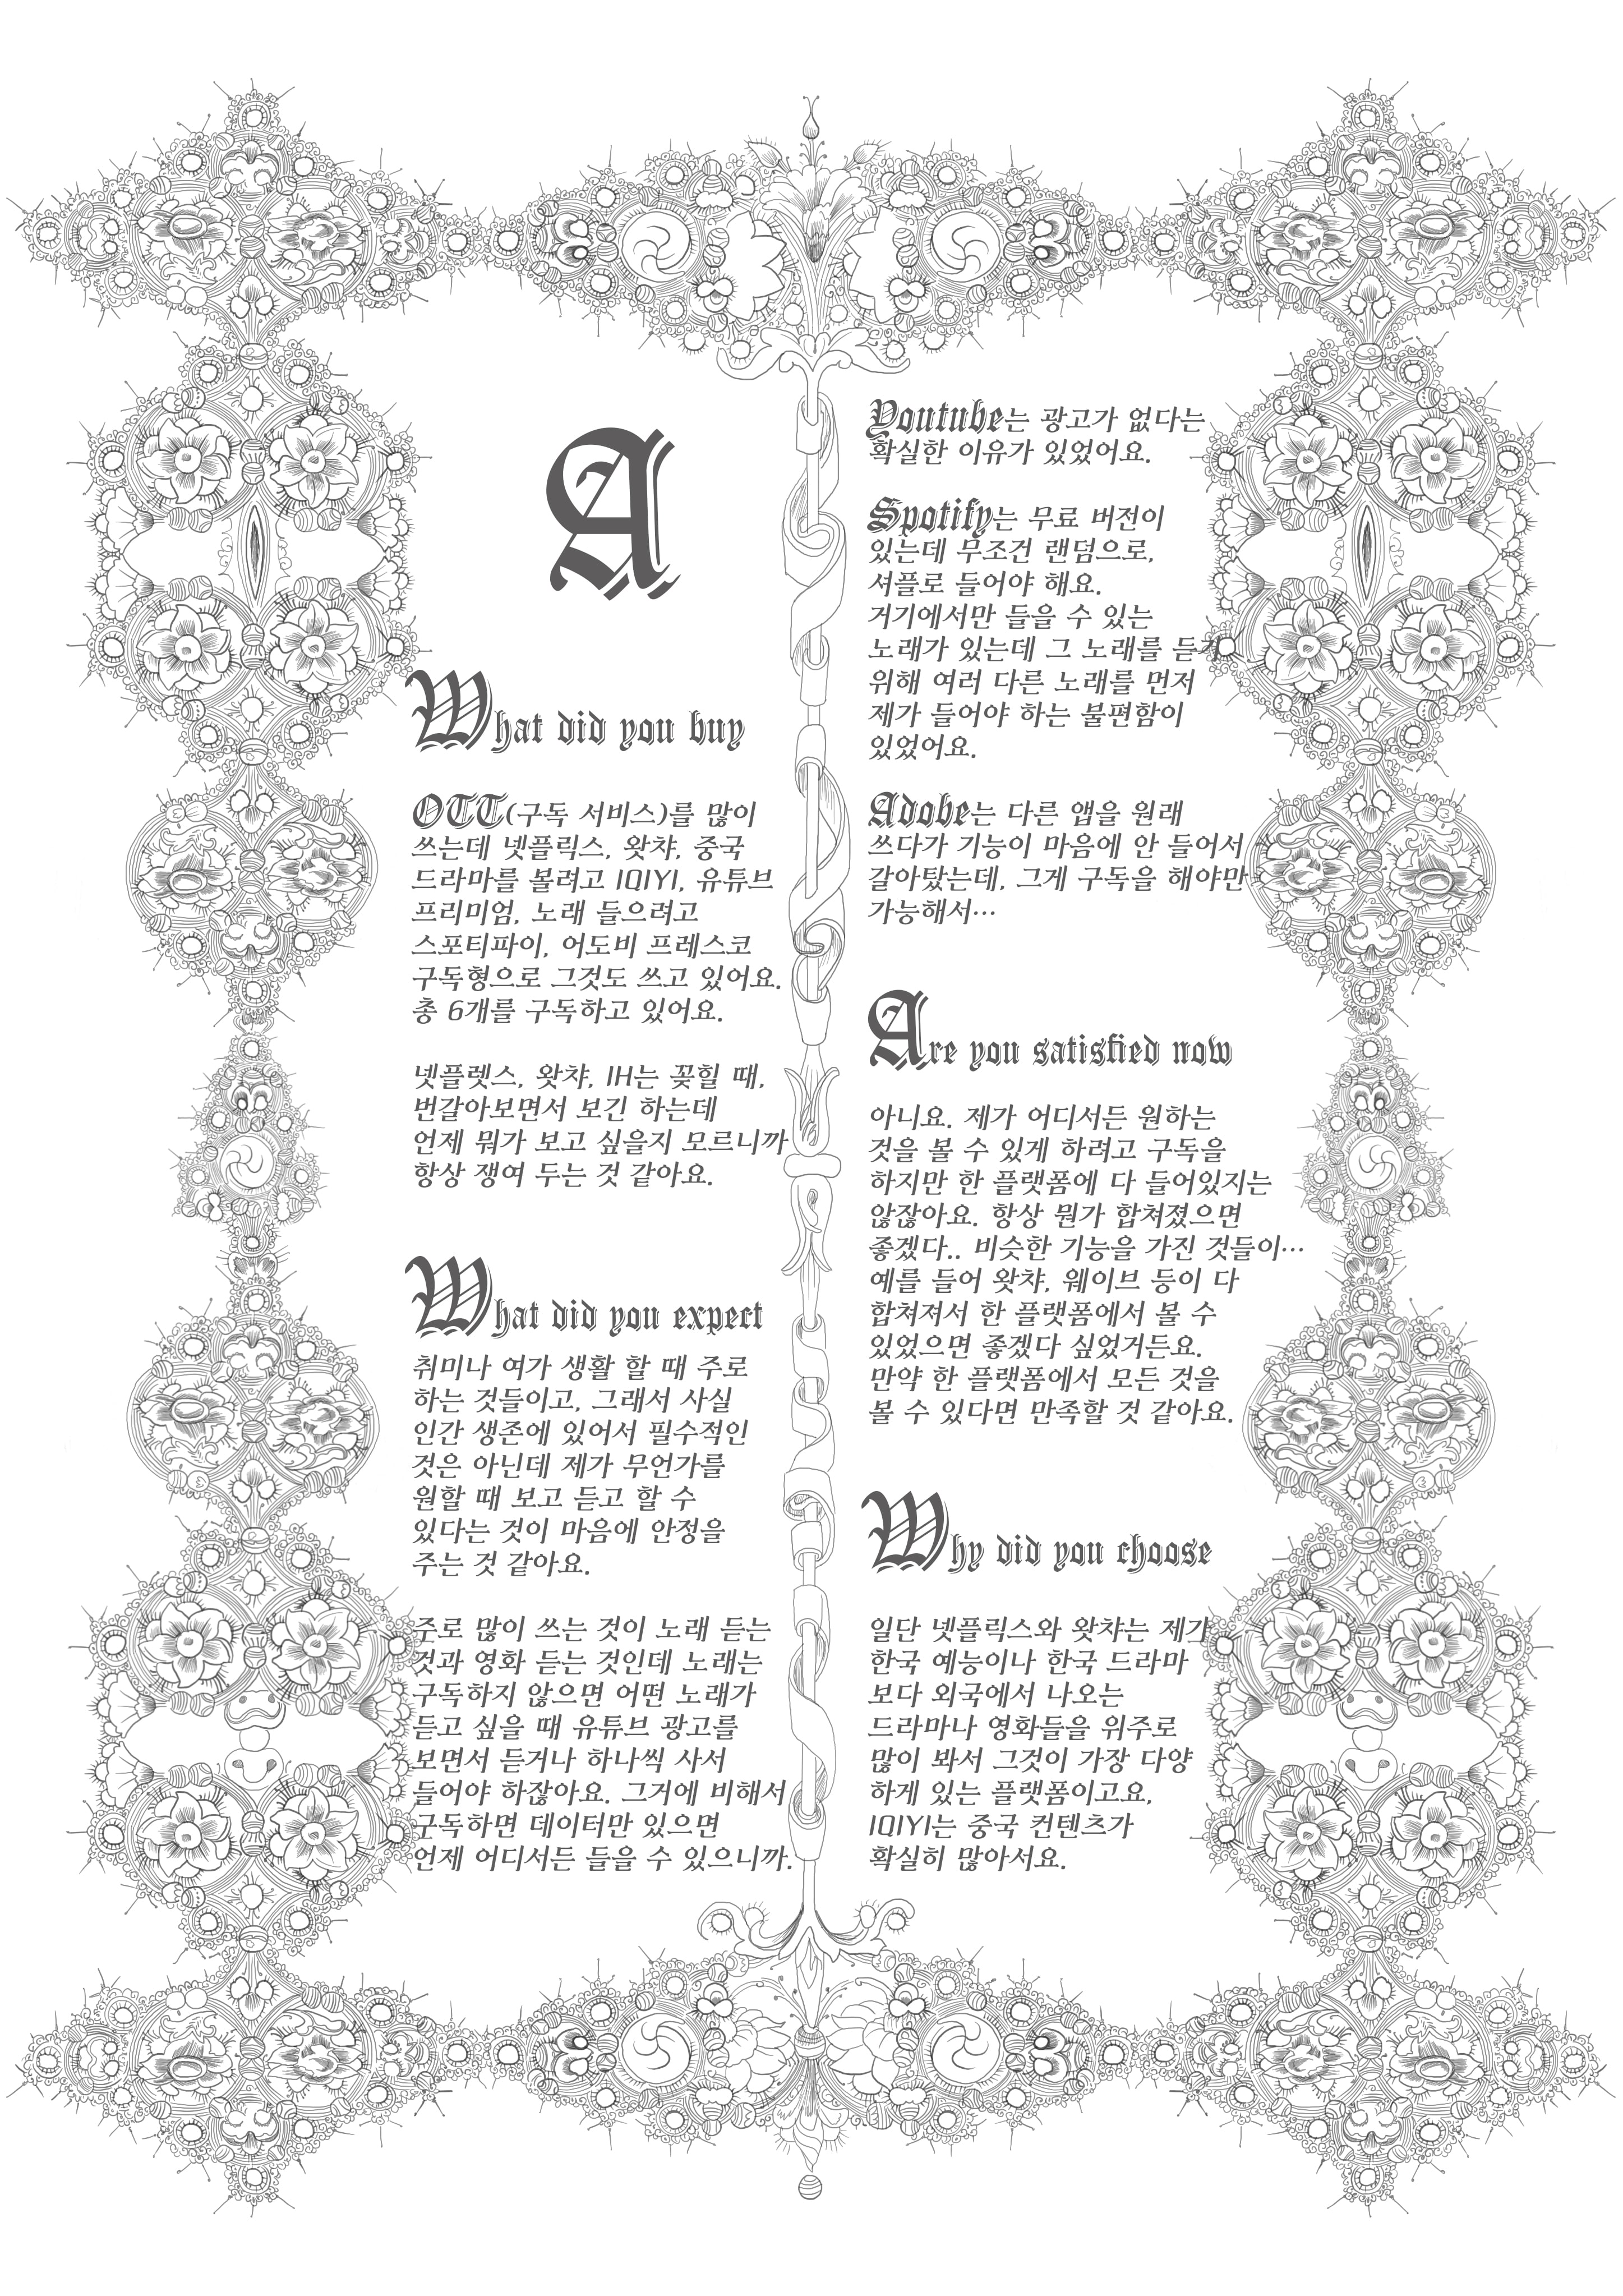 A
What did you buy
OTT(구독 서비스)를 많이
쓰는데 넷플릭스, 왓챠, 중국
드라마를 볼려고 IQIYI, 유튜브
프리미엄, 노래 들으려고
스포티파이, 어도비 프레스코
구독형으로 그것도 쓰고 있어요.
총 6개를 구독하고 있어요.
넷플렛스, 왓챠, IH는 꽂힐 때,
번갈아보면서 보긴 하는데
언제 뭐가 보고 싶을지 모르니까
항상 쟁여 두는 것 같아요.
What did you expect
취미나 여가 생활 할 때 주로
하는 것들이고, 그래서 사실
인간 생존에 있어서 필수적인
것은 아닌데 제가 무언가를
원할 때 보고 듣고 할 수
있다는 것이 마음에 안정을
주는 것 같아요.
주로 많이 쓰는 것이 노래 듣는
것과 영화 듣는 것인데 노래는
구독하지 않으면 어떤 노래가
듣고 싶을 때 유튜브 광고를
보면서 듣거나 하나씩 사서
들어야 하잖아요. 그거에 비해서
구독하면 데이터만 있으면
언제 어디서든 들을 수 있으니까.
Youtube는 광고가 없다는
확실한 이유가 있었어요.
Spotify는 무료 버전이
있는데 무조건 랜덤으로,
셔플로 들어야 해요.
거기에서만 들을 수 있는
노래가 있는데 그 노래를 듣기
위해 여러 다른 노래를 먼저
제가 들어야 하는 불편함이
있었어요.
Adobe는 다른 앱을 원래
쓰다가 기능이 마음에 안 들어서
갈아탔는데, 그게 구독을 해야만
가능해서…
Are you satisfied now
아니요. 제가 어디서든 원하는
것을 볼 수 있게 하려고 구독을
하지만 한 플랫폼에 다 들어있지는
않잖아요. 항상 뭔가 합쳐졌으면
좋겠다.. 비슷한 기능을 가진 것들이…
예를 들어 왓챠, 웨이브 등이 다
합쳐져서 한 플랫폼에서 볼 수
있었으면 좋겠다 싶었거든요.
만약 한 플랫폼에서 모든 것을
볼 수 있다면 만족할 것 같아요.
Why did you choose
일단 넷플릭스와 왓챠는 제가
한국 예능이나 한국 드라마
보다 외국에서 나오는
드라마나 영화들을 위주로
많이 봐서 그것이 가장 다양
하게 있는 플랫폼이고요,
IQIYI는 중국 컨텐츠가
확실히 많아서요.